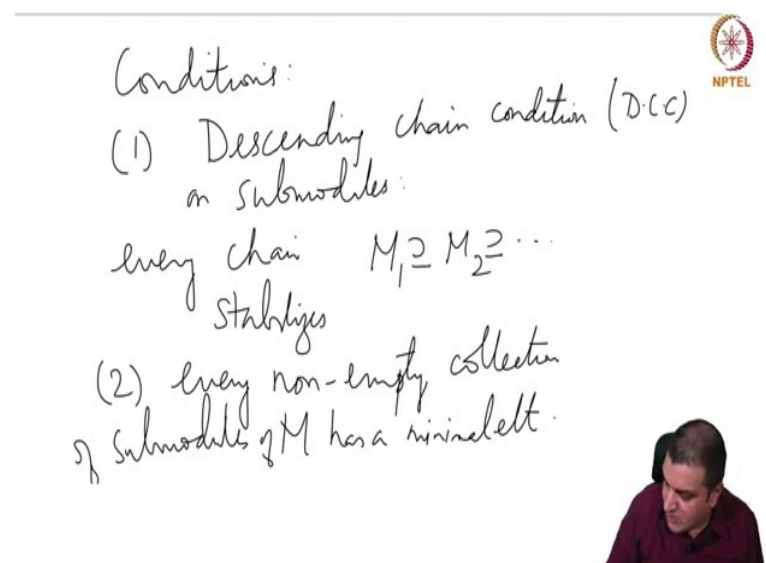 NPTEL
Conditions:
(1) Descending chain condition (D.C.C)
on submodules:
every chain M₁ ⊇ M₂ ⊇ ...
stabilizes
(2) every non-empty collection
of submodules of M has a minimal elt.